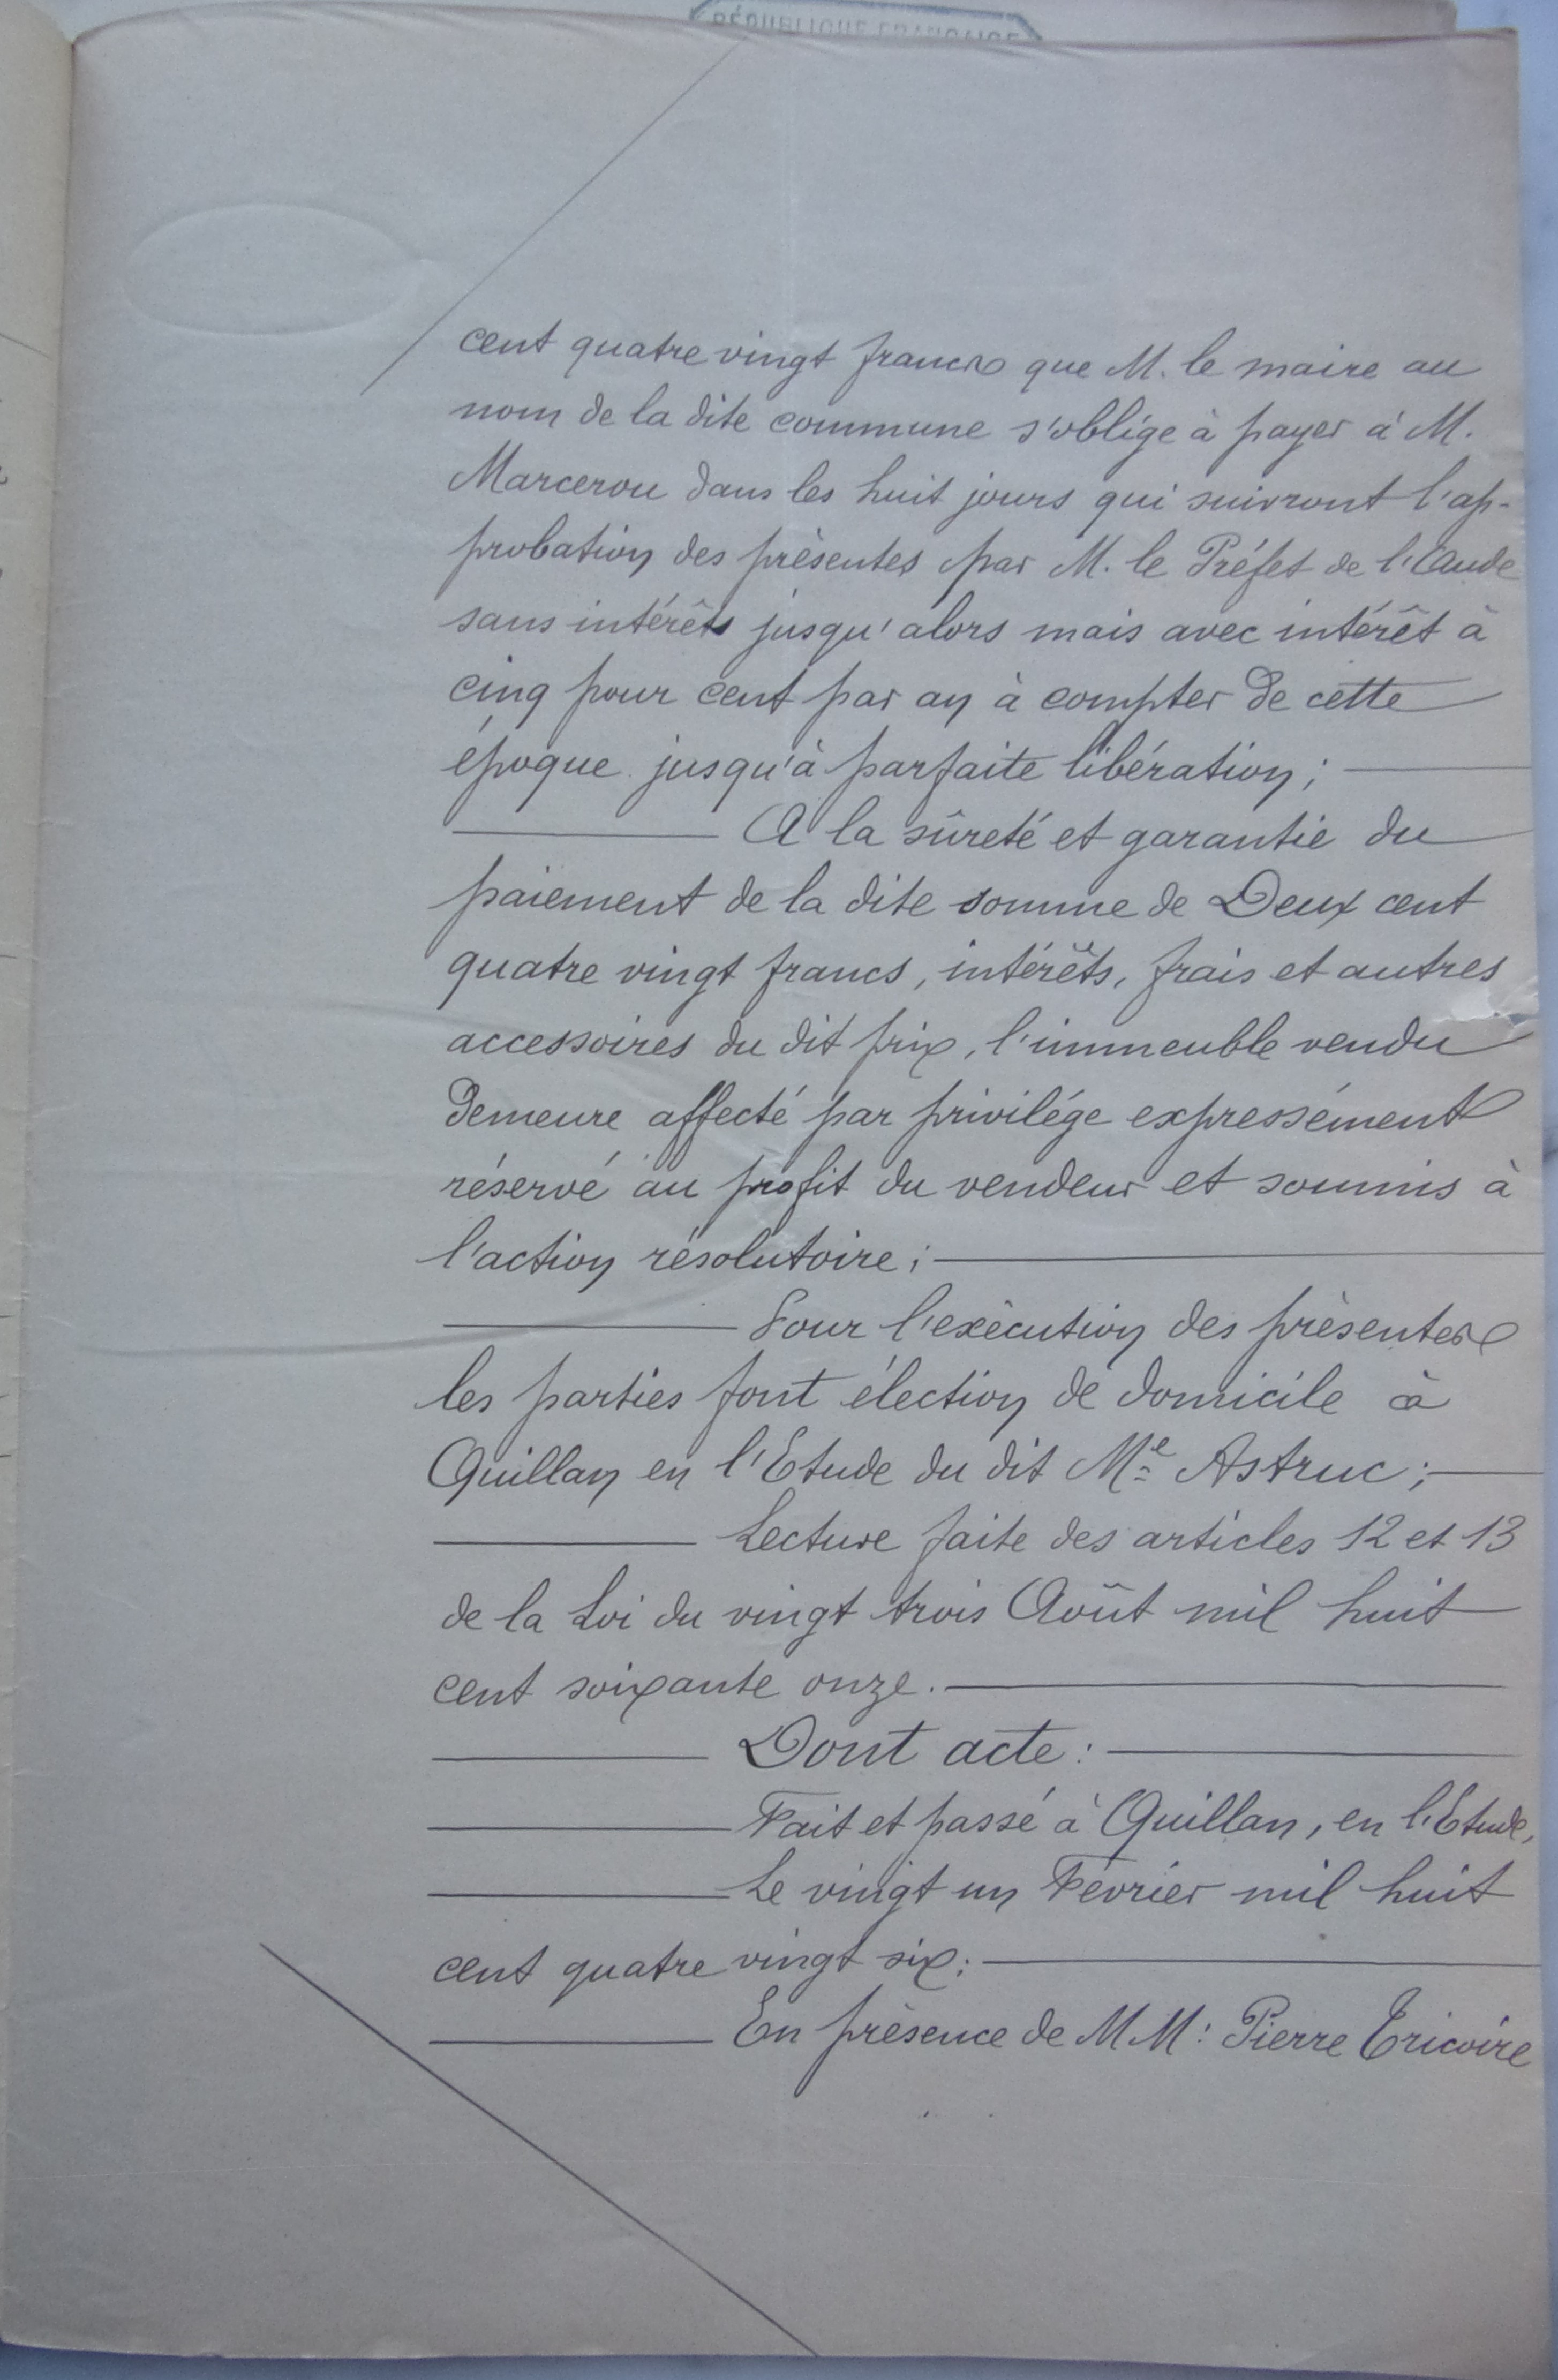 RÉPUBLIQUE FRANÇAISE
cent quatre vingt francs que M. le maire au
nom de la dite commune s'oblige à payer à M.
Marcerou dans les huit jours qui suivront l'ap-
probation des présentes par M. le Préfet de l'Aude
sans intérêts jusqu'alors mais avec intérêt à
cinq pour cent par an à compter de cette
époque jusqu'à parfaite libération;
A la sûreté et garantie du
paiement de la dite somme de Deux cent
quatre vingt francs, intérêts, frais et autres
accessoires du dit prix, l'immeuble vendu
demeure affecté par privilége expressément
réservé au profit du vendeur et soumis à
l'action résolutoire;
Pour l'exécution des présentes
les parties font élection de domicile à
Quillan en l'Etude du dit Me Astruc;
Lecture faite des articles 12 et 13
de la Loi du vingt trois Août mil huit
cent soixante onze.
Dont acte:
Fait et passé à Quillan, en l'Etude,
Le vingt un Février mil huit
cent quatre vingt six:
En présence de MM: Pierre Tricoire